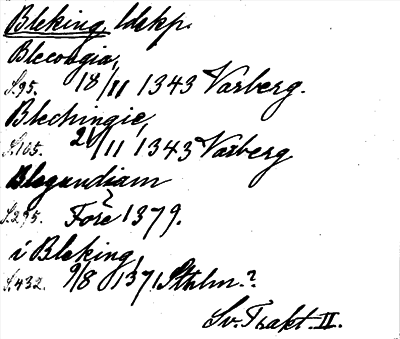 Bleking, ldskp.
Blecongia,
S. 95. 18/11 1343 Varberg.
Blechingie,
S. 105. 21/11 1343 Varberg
Blegundiam
S. 295. Före 1379.
i Bleking,
S. 432. 9/8 1371 Sthlm.?
Sv. Trakt. II.